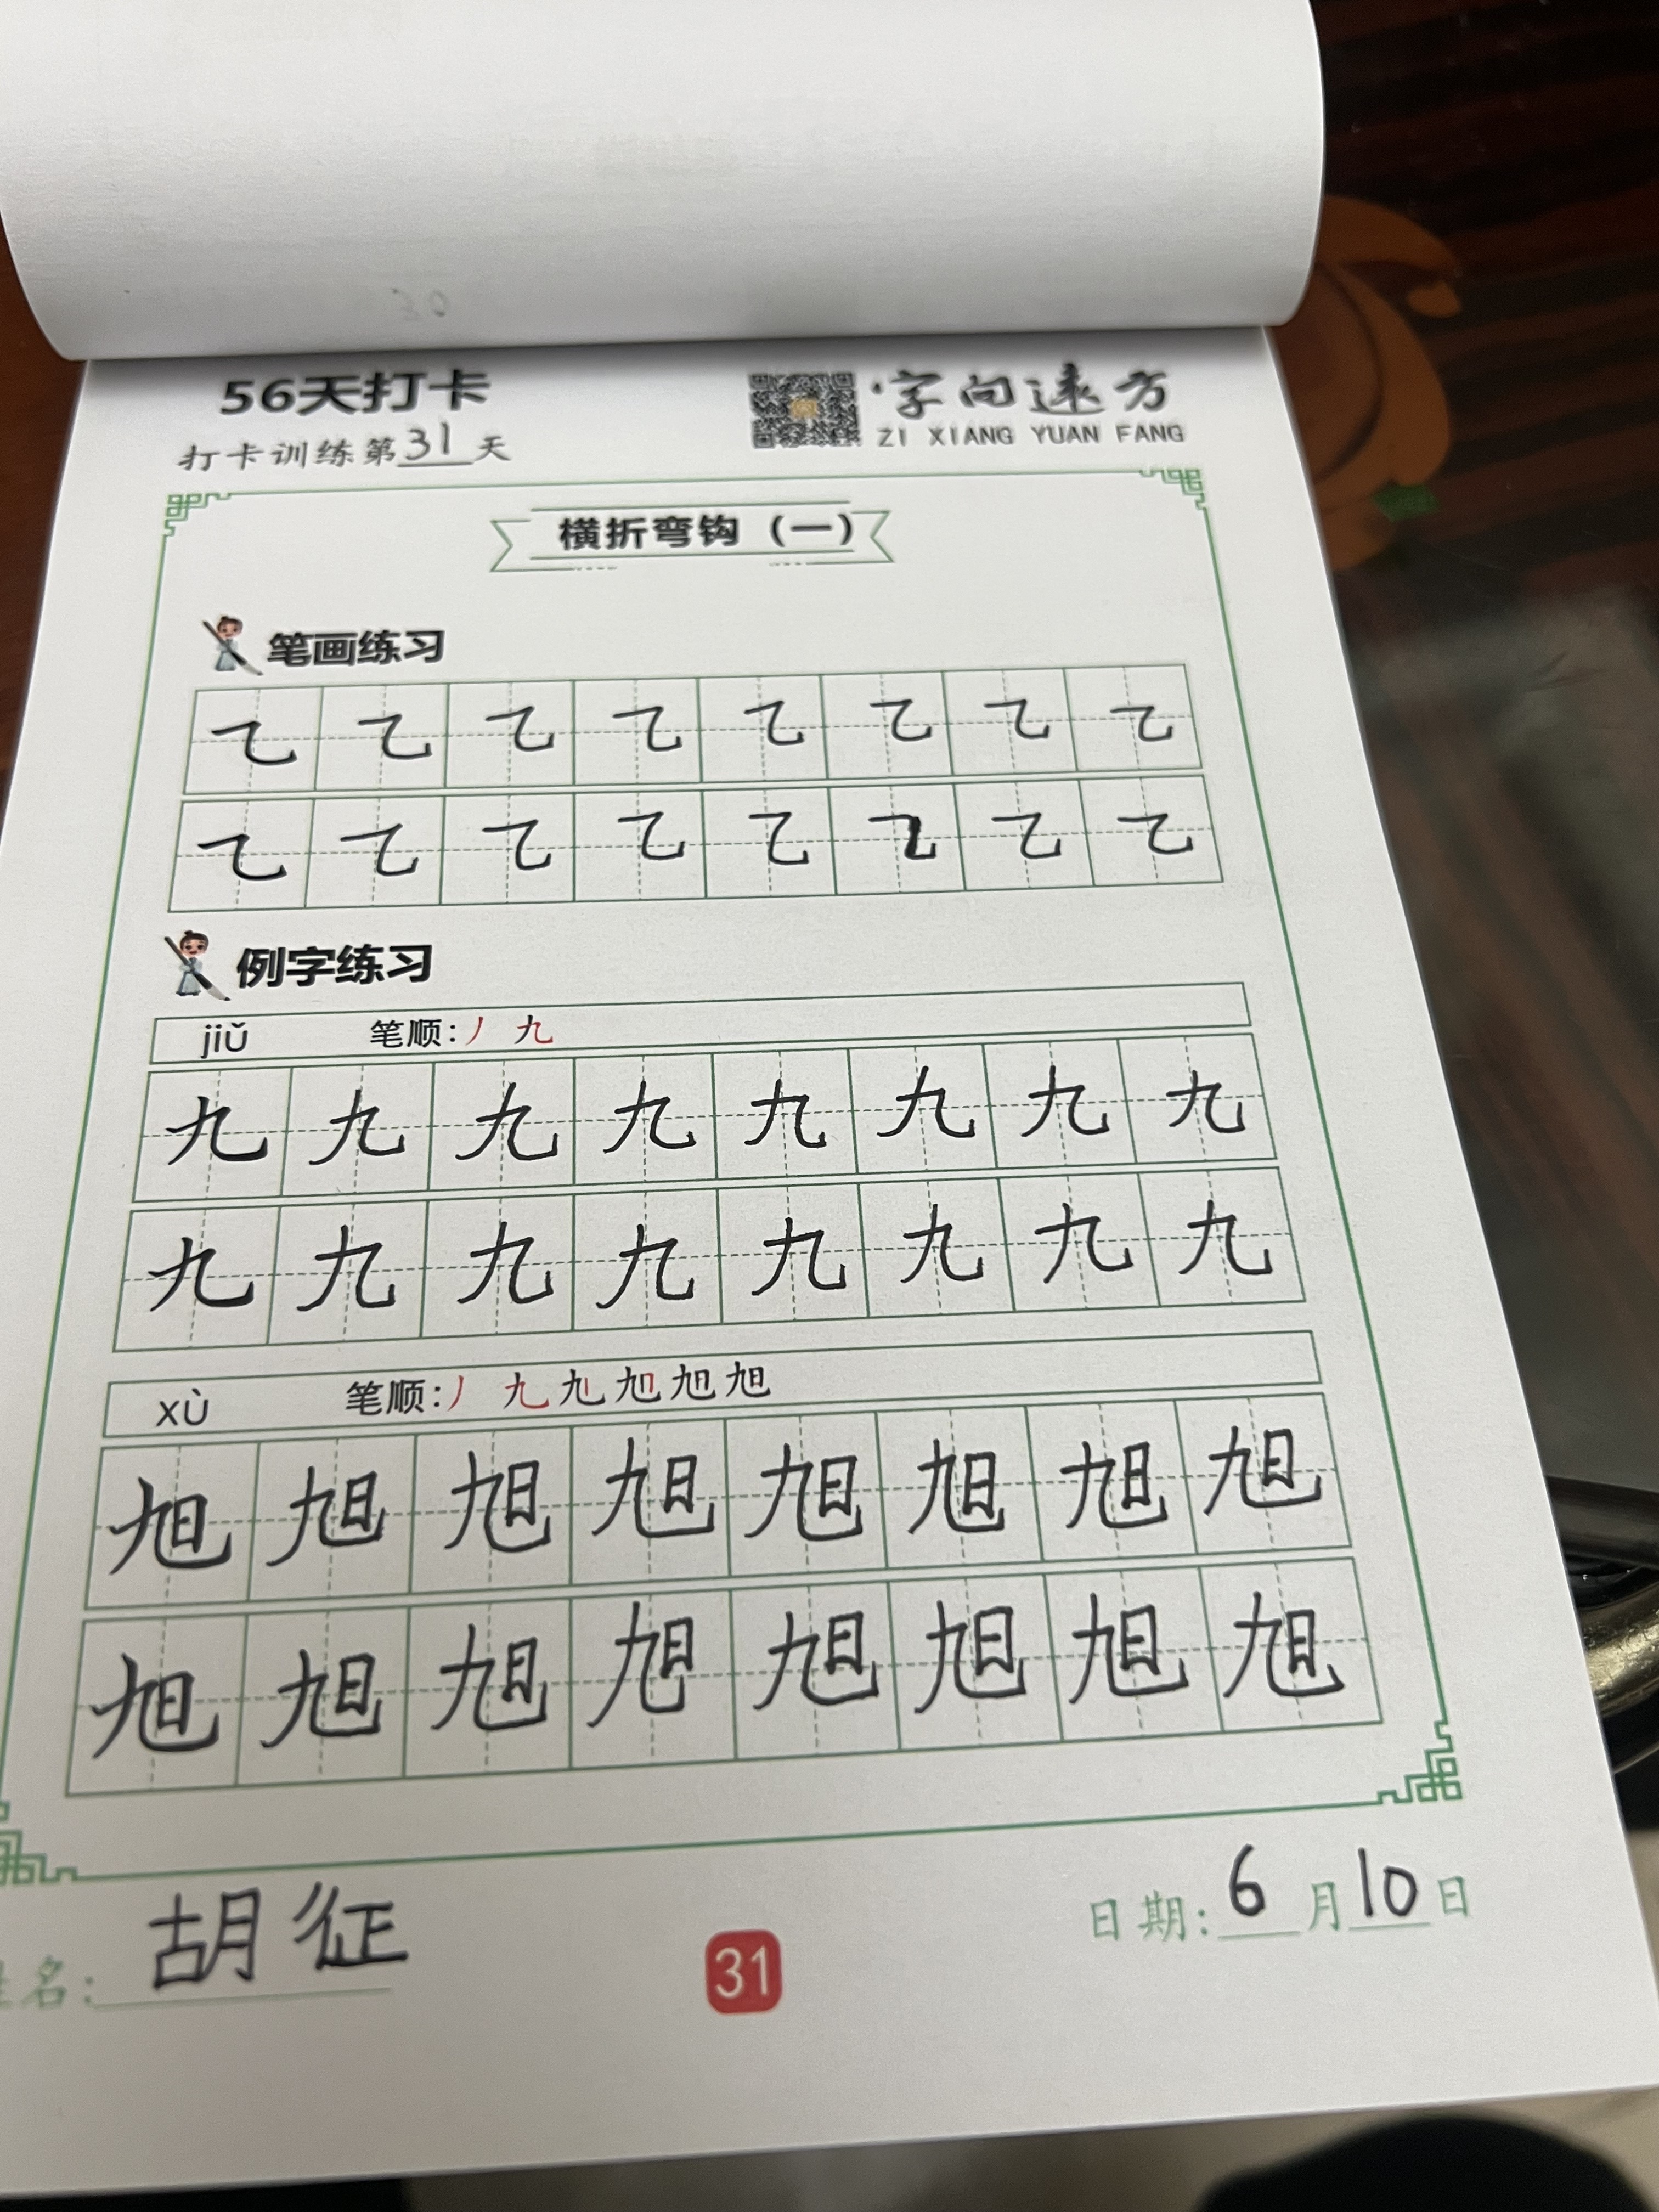 30
56天打卡
字向远方
打卡训练第31天
ZI XIANG YUAN FANG
横折弯钩（一）
笔画练习
㇈ ㇈ ㇈ ㇈ ㇈ ㇈ ㇈ ㇈
㇈ ㇈ ㇈ ㇈ ㇈ ㇈ ㇈ ㇈
例字练习
jiǔ 笔顺：丿 九
九 九 九 九 九 九 九 九
九 九 九 九 九 九 九 九
xù 笔顺：丿 九 旭 旭 旭 旭
旭 旭 旭 旭 旭 旭 旭 旭
旭 旭 旭 旭 旭 旭 旭 旭
姓名：胡征
日期：6月10日
31